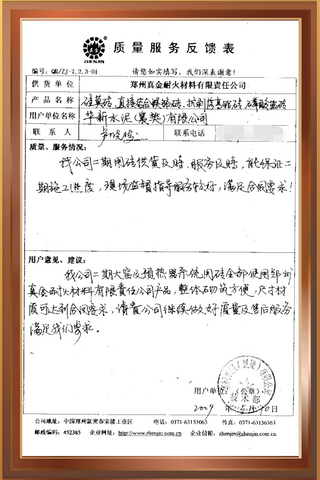 ZHENJIN
质量服务反馈表
编号:QR/ZJ-7.2.3-01 请您如实填写,我们深表谢意!
供货单位 郑州真金耐火材料有限责任公司
产品名称 硅莫砖、直接结合镁铬砖、抗剥落高铝砖、磷酸盐砖
用户单位名称 华新水泥(襄樊)有限公司
联系人 联系电话
质量、服务情况:
我公司二期用砖供货及时、服务及时,能保证二
期施工进度,现场监督指导服务较好,满足合同要求!
用户意见、建议:
我公司二期大窑及预热器所使用砖全部使用郑州
真金耐火材料有限责任公司产品,整体砌筑方便,尺寸材
质可达到合同要求,请贵公司继续做好质量及售后服务
满足我们要求。
用户单位 (公章)
技术部
2009年
公司地址:中国郑州新密市来集工业园 电话:0371-63151063 传真:0371-63156363
邮政编码:452385 企业网址:http://www.zhenjin.com 企业信箱:zhenjin@zhenjin.com